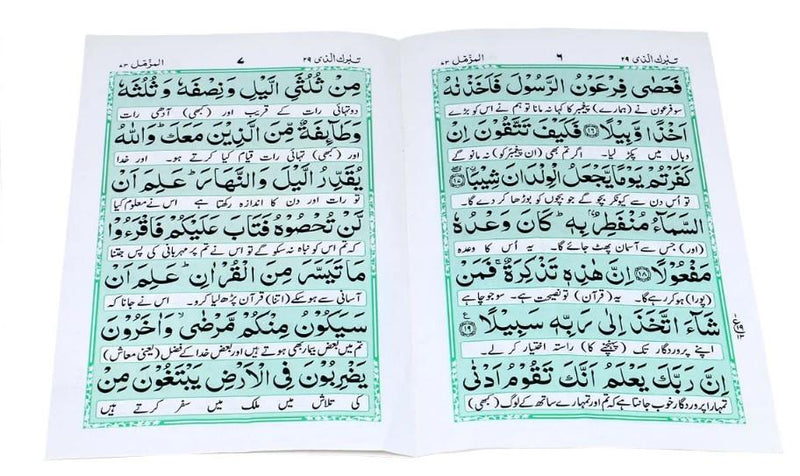 تبٰرك الذی ٢٩
٦
المزمل ٧٣
فَعَصٰى فِرْعَوْنُ الرَّسُوْلَ فَاَخَذْنٰهُ
سو فرعون نے (ہمارے) پیغمبر کا کہا نہ مانا تو ہم نے اس کو بڑے
اَخْذًا وَّبِيْلًا ﴿١٦﴾ فَكَيْفَ تَتَّقُوْنَ اِنْ
وبال میں پکڑ لیا۔ اگر تم بھی (ان پیغمبر کو) نہ مانو گے
كَفَرْتُمْ يَوْمًا يَّجْعَلُ الْوِلْدَانَ شِيْبًا ﴿١٧﴾
تو اُس دن سے کیونکر بچو گے جو بچوں کو بوڑھا کر دے گا۔
السَّمَآءُ مُنْفَطِرٌۢ بِهٖ ؕ كَانَ وَعْدُهٗ
(اور) جس سے آسمان پھٹ جائے گا۔ یہ اُس کا وعدہ
مَفْعُوْلًا ﴿١٨﴾ اِنَّ هٰذِهٖ تَذْكِرَةٌ ۚ فَمَنْ
(پورا) ہو کر رہے گا۔ یہ (قرآن) تو نصیحت ہے۔ سو جو چاہے
شَآءَ اتَّخَذَ اِلٰى رَبِّهٖ سَبِيْلًا ﴿١٩﴾ ع
اپنے پروردگار تک (پہنچنے کا) راستہ اختیار کر لے۔
اِنَّ رَبَّكَ يَعْلَمُ اَنَّكَ تَقُوْمُ اَدْنٰى
تمہارا پروردگار خوب جانتا ہے کہ تم اور تمہارے ساتھ کے لوگ (کبھی)
تبٰرك الذی ٢٩
٧
المزمل ٧٣
مِنْ ثُلُثَىِ الَّيْلِ وَنِصْفَهٗ وَثُلُثَهٗ
دو تہائی رات کے قریب اور (کبھی) آدھی رات
وَطَآئِفَةٌ مِّنَ الَّذِيْنَ مَعَكَ ؕ وَاللّٰهُ
اور (کبھی) تہائی رات قیام کیا کرتے ہو۔ اور خدا
يُقَدِّرُ الَّيْلَ وَالنَّهَارَ ؕ عَلِمَ اَنْ
تو رات اور دن کا اندازہ رکھتا ہے اس نے معلوم کیا
لَّنْ تُحْصُوْهُ فَتَابَ عَلَيْكُمْ فَاقْرَءُوْا
کہ تم اس کو نباہ نہ سکو گے تو اس نے تم پر مہربانی کی پس جتنا
مَا تَيَسَّرَ مِنَ الْقُرْاٰنِ ؕ عَلِمَ اَنْ
آسانی سے ہو سکے (اتنا) قرآن پڑھ لیا کرو۔ اس نے جانا کہ
سَيَكُوْنُ مِنْكُمْ مَّرْضٰى ۙ وَاٰخَرُوْنَ
تم میں بعض بیمار بھی ہوتے ہیں اور بعض خدا کے فضل (یعنی معاش)
يَضْرِبُوْنَ فِى الْاَرْضِ يَبْتَغُوْنَ مِنْ
کی تلاش میں ملک میں سفر کرتے ہیں